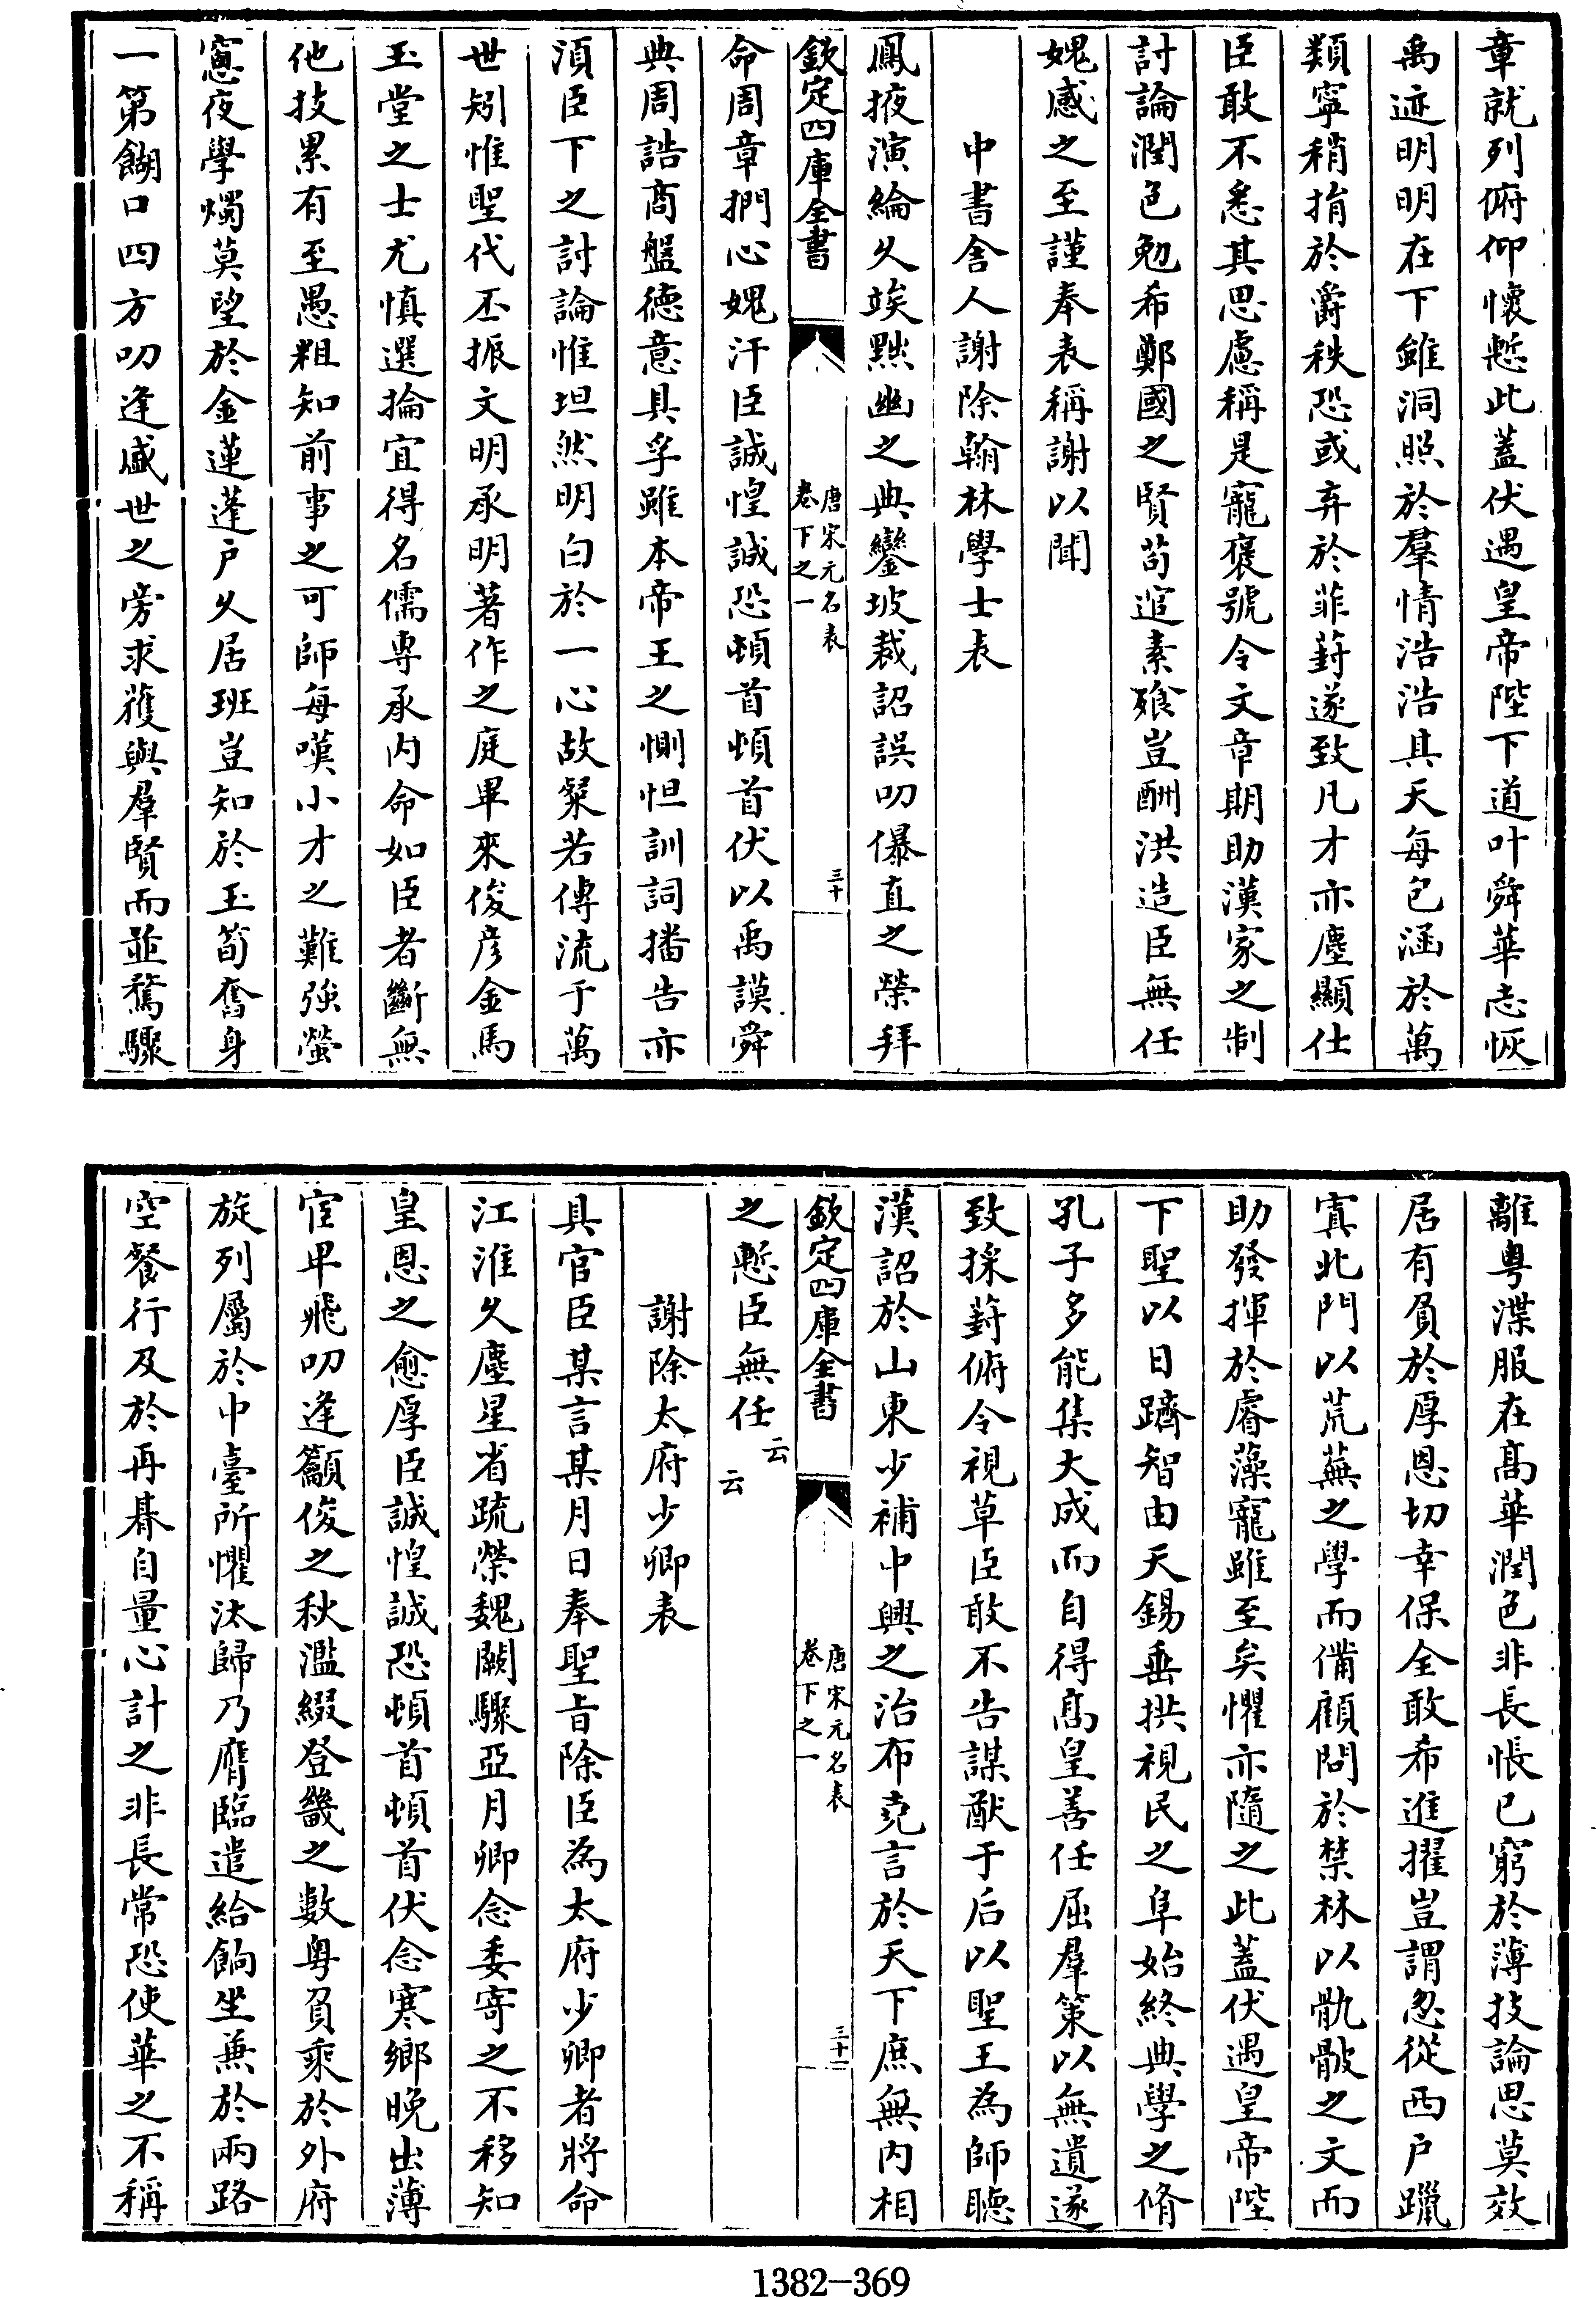 章就列俯仰懷慙此蓋伏遇皇帝陛下道叶舜華志恢
禹迹明明在下雖洞照於羣情浩浩其天每包涵於萬
類寧稍捐於爵秩恐或弃於菲葑遂致凡才亦塵顯仕
臣敢不悉其思慮稱是寵褒號令文章期助漢家之制
討論潤色勉希鄭國之賢茍逭素飱豈酬洪造臣無任
媿感之至謹奉表稱謝以聞
中書舍人謝除翰林學士表
鳳掖演綸久竢黜幽之典鑾坡裁詔誤叨儤直之榮拜
欽定四庫全書
唐宋元名表
卷下之一
三十
命周章捫心媿汗臣誠惶誠恐頓首頓首伏以禹謨舜
典周誥商盤徳意具孚雖本帝王之惻怛訓詞播告亦
湏臣下之討論惟坦然明白於一心故粲若傳流于萬
世矧惟聖代丕振文明承明著作之庭畢來俊彦金馬
玉堂之士尤慎選掄宜得名儒専承内命如臣者斷無
他技累有至愚粗知前事之可師每嘆小才之難強螢
窻夜學燭莫望於金蓮蓬户久居班豈知於玉筍奮身
一第餬口四方叨逢盛世之旁求獲與羣賢而並騖驟
離粤渫服在髙華潤色非長悵已窮於薄技論思莫效
居有負於厚恩切幸保全敢希進擢豈謂忽從西户躐
寘北門以荒蕪之學而備顧問於禁林以骫骳之文而
助發揮於睿藻寵雖至矣懼亦隨之此蓋伏遇皇帝陛
下聖以日躋智由天錫垂拱視民之阜始終典學之脩
孔子多能集大成而自得髙皇善任屈羣策以無遺遂
致採葑俯令視草臣敢不告謀猷于后以聖王為師聽
漢詔於山東少補中興之治布堯言於天下庶無内相
欽定四庫全書
唐宋元名表
卷下之一
三十一
之慙臣無任云云
謝除太府少卿表
具官臣某言某月日奉聖旨除臣為太府少卿者將命
江淮久塵星省疏榮魏闕驟亞月卿念委寄之不移知
皇恩之愈厚臣誠惶誠恐頓首頓首伏念寒鄉晚出薄
宦卑飛叨逢籲俊之秋濫綴登畿之數粤負乗於外府
旋列屬於中臺所懼汰歸乃膺臨遣給餉坐兼於兩路
空餐行及於再朞自量心計之非長常恐使華之不稱
1382-369